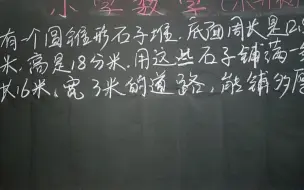 小学数学
有一个圆锥形石子堆.底面周长是12.
米,高是18分米.用这些石子铺满一
长16米,宽3米的道路,能铺多厚